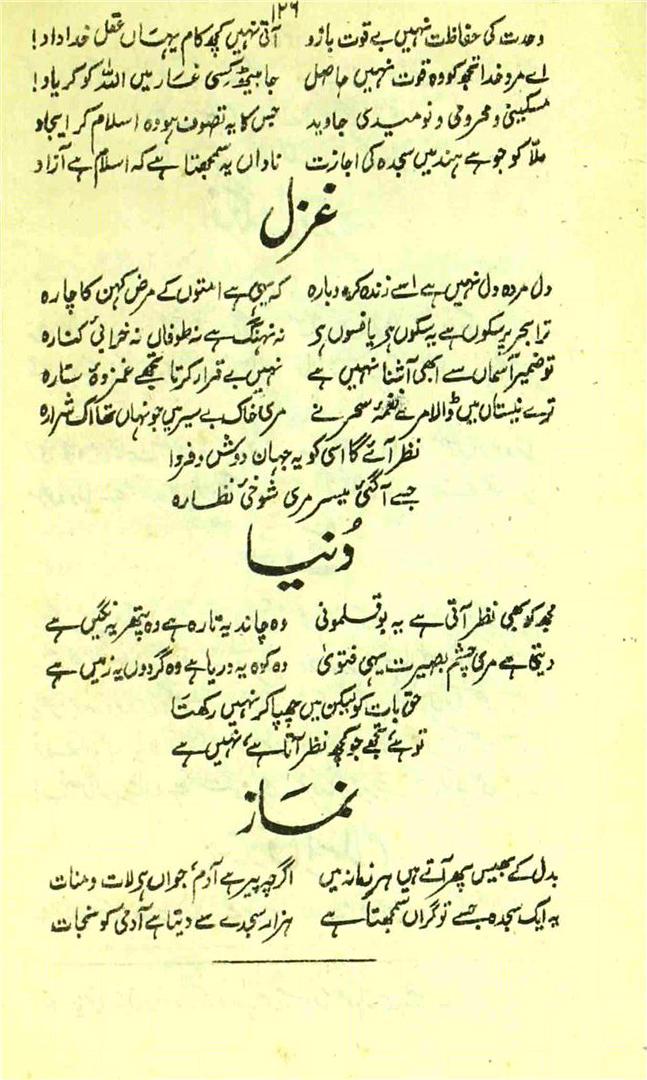 ۱۲۶
وحدت کی حفاظت نہیں بے قوت بازو آتی نہیں کچھ کام یہاں عقل خداداد!
اے مرد خدا تجھ کو وہ قوت نہیں حاصل جا بیٹھ کسی غار میں اللہ کو کر یاد!
مسکینی و محرومی و نومیدی جاوید جس کا یہ تصوف ہو وہ اسلام کر ایجاد
ملا کو جو ہے ہند میں سجدہ کی اجازت ناداں یہ سمجھتا ہے کہ اسلام ہے آزاد
غزل
دل مردہ دل نہیں ہے اسے زندہ کر دوبارہ کہ یہی ہے امتوں کے مرض کہن کا چارہ
ترا بحر پر سکوں ہے یہ سکوں ہے یا فسوں ہے نہ نہنگ ہے نہ طوفاں نہ خرابیٔ کنارہ
تو ضمیر آسماں سے ابھی آشنا نہیں ہے نہیں بے قرار کرتا تجھے غمزۂ ستارہ
ترے نیستاں میں ڈالا مرے نغمۂ سحر نے مری خاک بے سپر میں جو نہاں تھا اک شرارہ
نظر آئے گا اسی کو یہ جہان دوش و فردا
جسے آ گئی میسر مری شوخیٔ نظارہ
دُنیا
مجھ کو بھی نظر آتی ہے یہ بوقلمونی وہ چاند یہ تارہ ہے وہ پتھر یہ نگیں ہے
دیتا ہے مری چشم بصیرت یہی فتویٰ وہ کوہ یہ دریا ہے وہ گردوں یہ زمیں ہے
حق بات کو لیکن میں چھپا کر نہیں رکھتا
تو ہے، تجھے جو کچھ نظر آتا ہے، نہیں ہے
نماز
بدل کے بھیس پھر آتے ہیں ہر زمانہ میں اگرچہ پیر ہے آدم، جواں ہیں لات و منات
یہ ایک سجدہ جسے تو گراں سمجھتا ہے ہزار سجدے سے دیتا ہے آدمی کو نجات